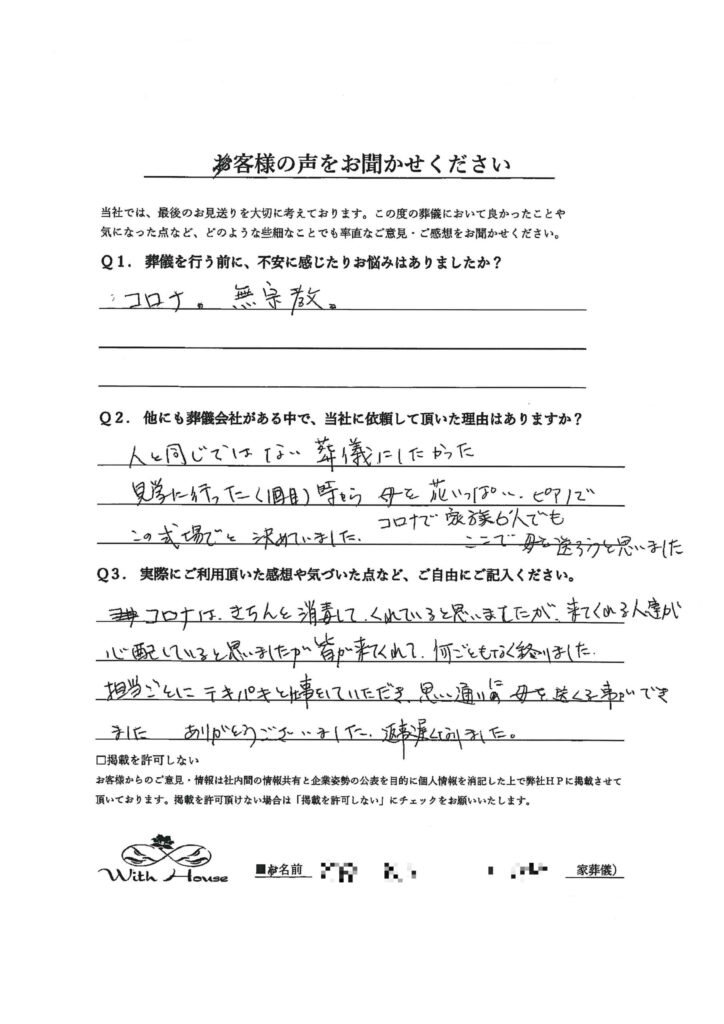 お客様の声をお聞かせください
当社では、最後のお見送りを大切に考えております。この度の葬儀において良かったことや
気になった点など、どのような些細なことでも率直なご意見・ご感想をお聞かせください。
Q1. 葬儀を行う前に、不安に感じたりお悩みはありましたか?
コロナ。無宗教。
Q2. 他にも葬儀会社がある中で、当社に依頼して頂いた理由はありますか?
人と同じではない葬儀にしたかった
見学に行った(1回目)時から 母を花いっぱい、ピアノで
この式場でと決めていました。コロナで家族6人でも
ここで母を送ろうと思いました
Q3. 実際にご利用頂いた感想や気づいた点など、ご自由にご記入ください。
コロナは、きちんと消毒してくれていると思いましたが、来てくれる人達が
心配していると思いましたが皆が来てくれて、何ごともなく終りました。
担当ごとにテキパキと仕事をしていただき、思い通りに母を送る事ができ
ました ありがとうございました。返事遅くなりました。
□掲載を許可しない
お客様からのご意見・情報は社内間の情報共有と企業姿勢の公表を目的に個人情報を消記した上で弊社HPに掲載させて
頂いております。掲載を許可頂けない場合は「掲載を許可しない」にチェックをお願いいたします。
With House
■お名前 家葬儀)